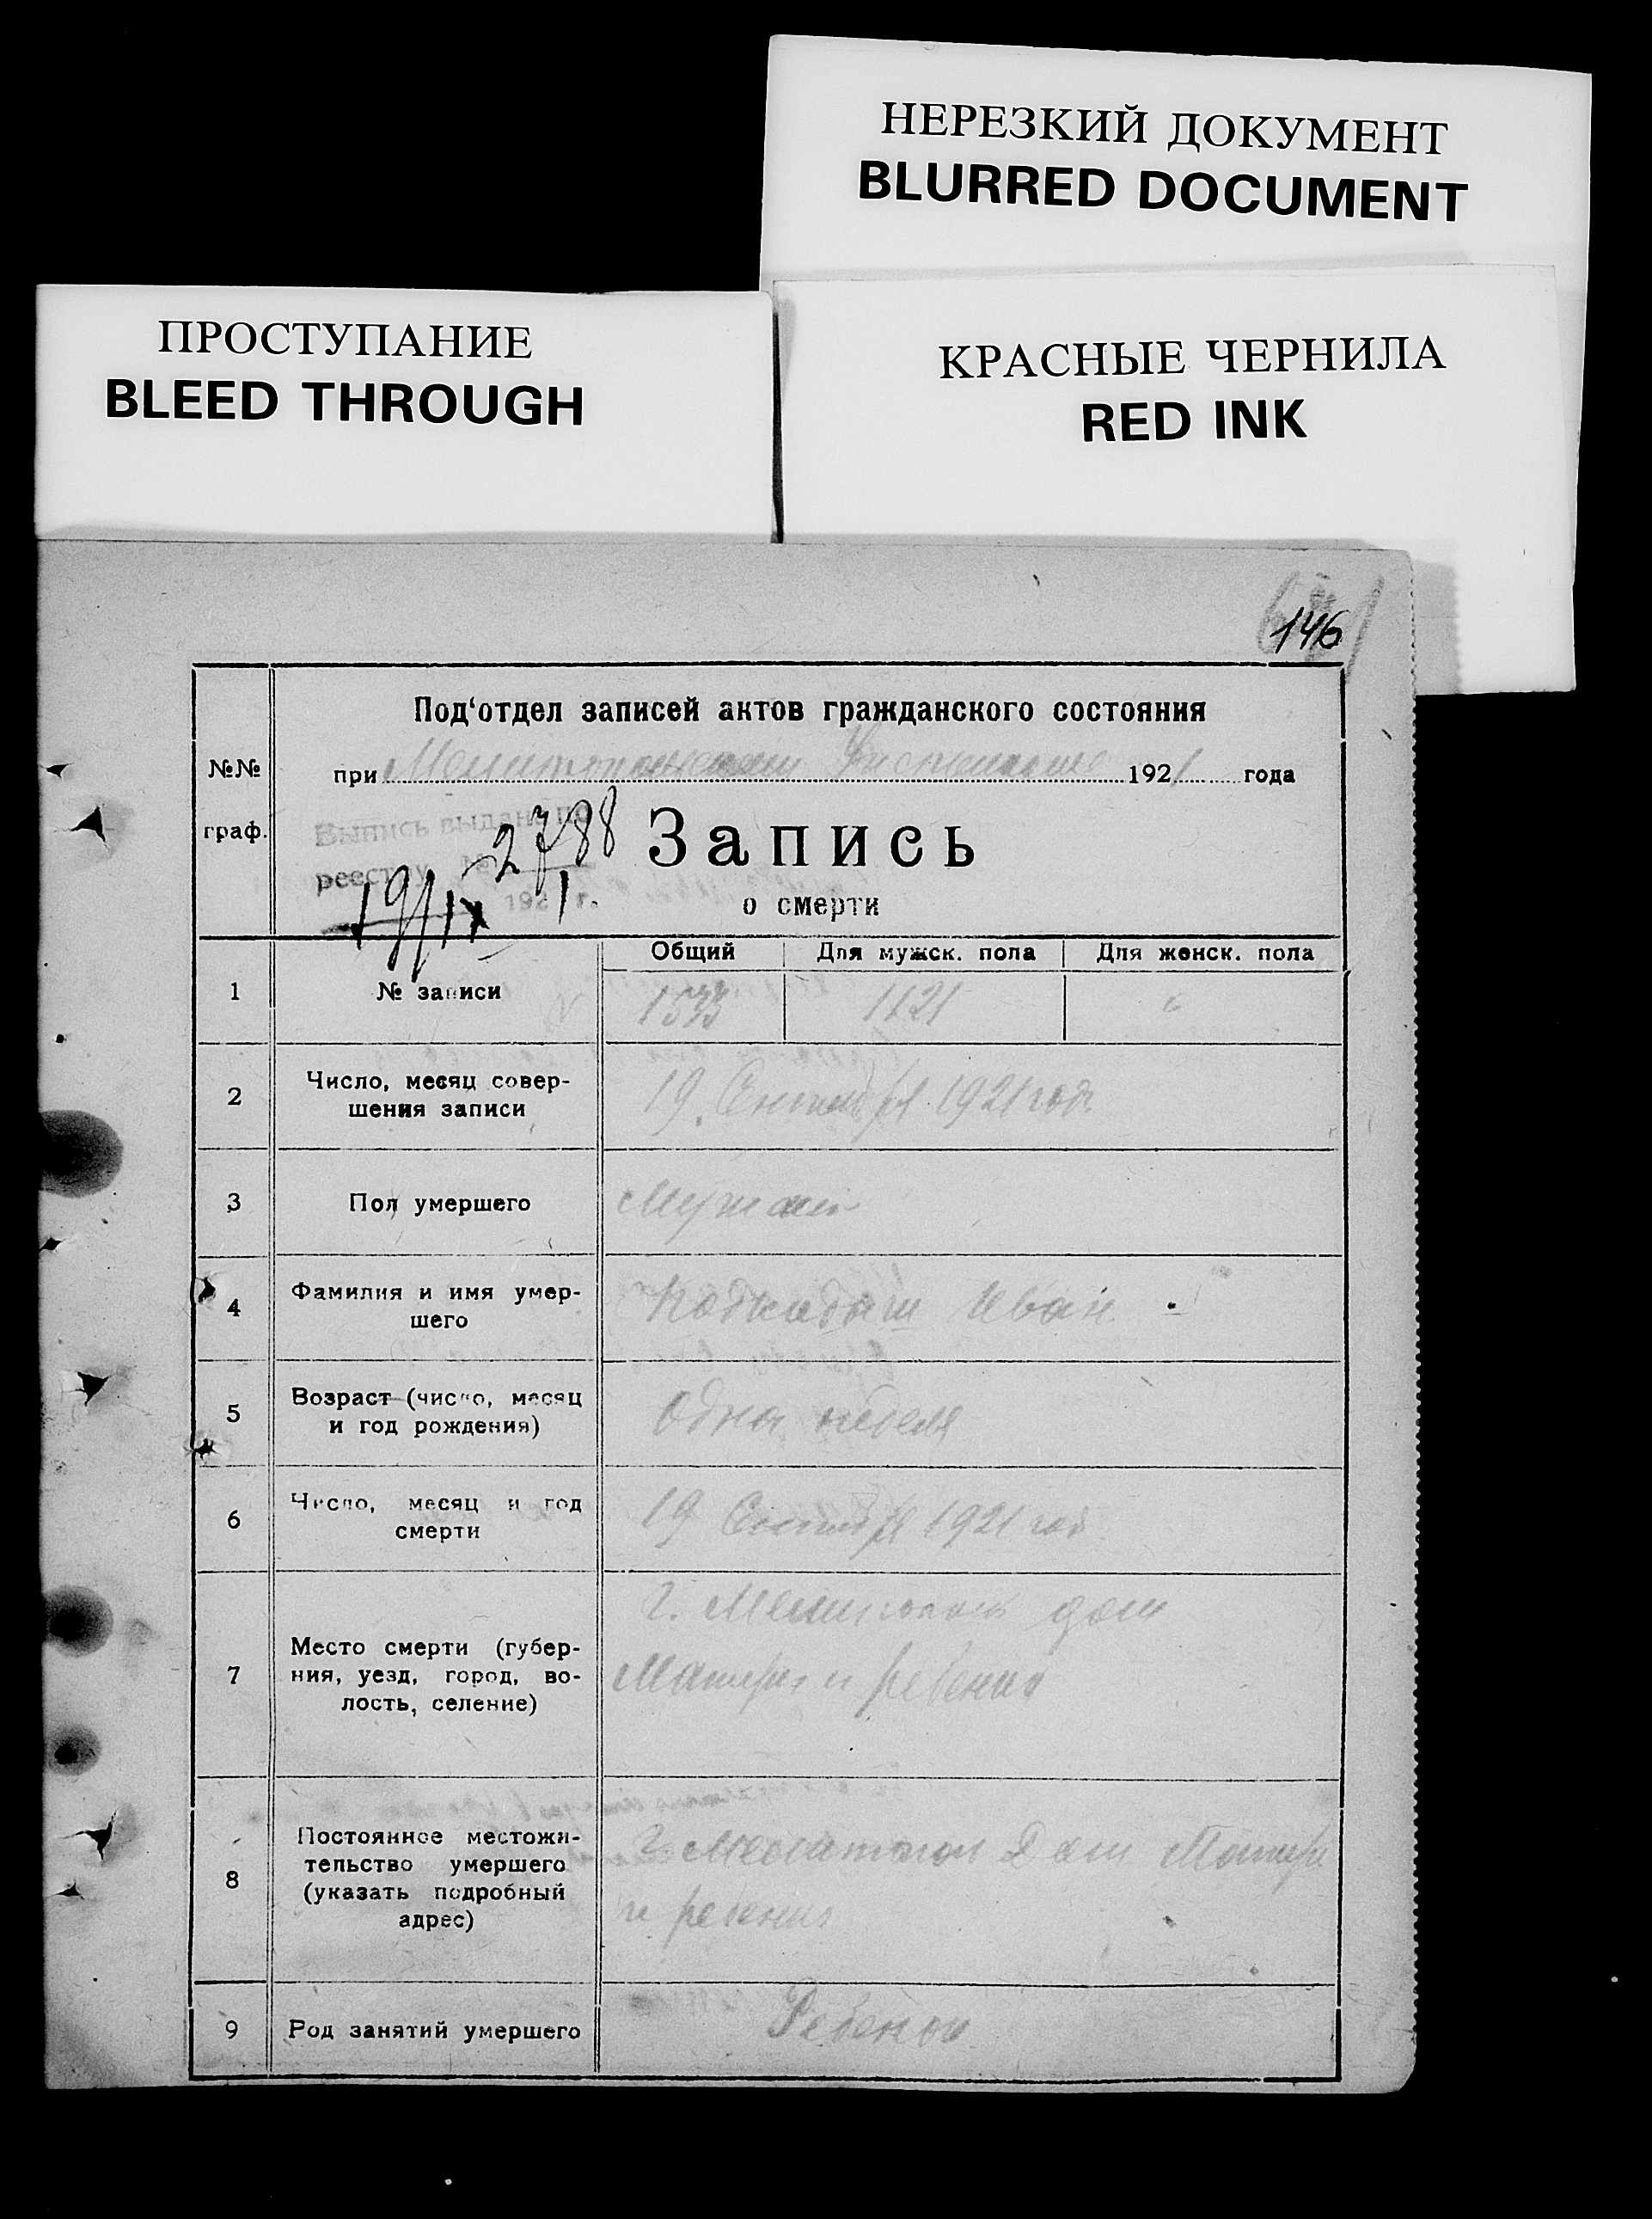 НЕРЕЗКИЙ ДОКУМЕНТ
BLURRED DOCUMENT
ПРОСТУПАНИЕ
BLEED THROUGH
КРАСНЫЕ ЧЕРНИЛА
RED INK
146
Под‘отдел записей актов гражданского состояния
№№ граф.
при 1921 года
Выпись выдана по
реестру № 2788
19/IX 1921 г.
Запись
о смерти
Общий Для мужск. пола Для женск. пола
1 № записи 1533 1121 "
2 Число, месяц совер-
шения записи
19 Сентября 1921 год
3 Пол умершего
4 Фамилия и имя умер-
шего
Подкидыш Иван
5 Возраст (число, месяц
и год рождения)
Одна неделя
6 Число, месяц и год
смерти
19 Сентября 1921 год
7 Место смерти (губер-
ния, уезд, город, во-
лость, селение)
г. Мелитополь дом
Матери и ребенка
8 Постоянное местожи-
тельство умершего
(указать подробный
адрес)
г. Мелитополь Дом Матери
и ребенка
9 Род занятий умершего
Ребенок